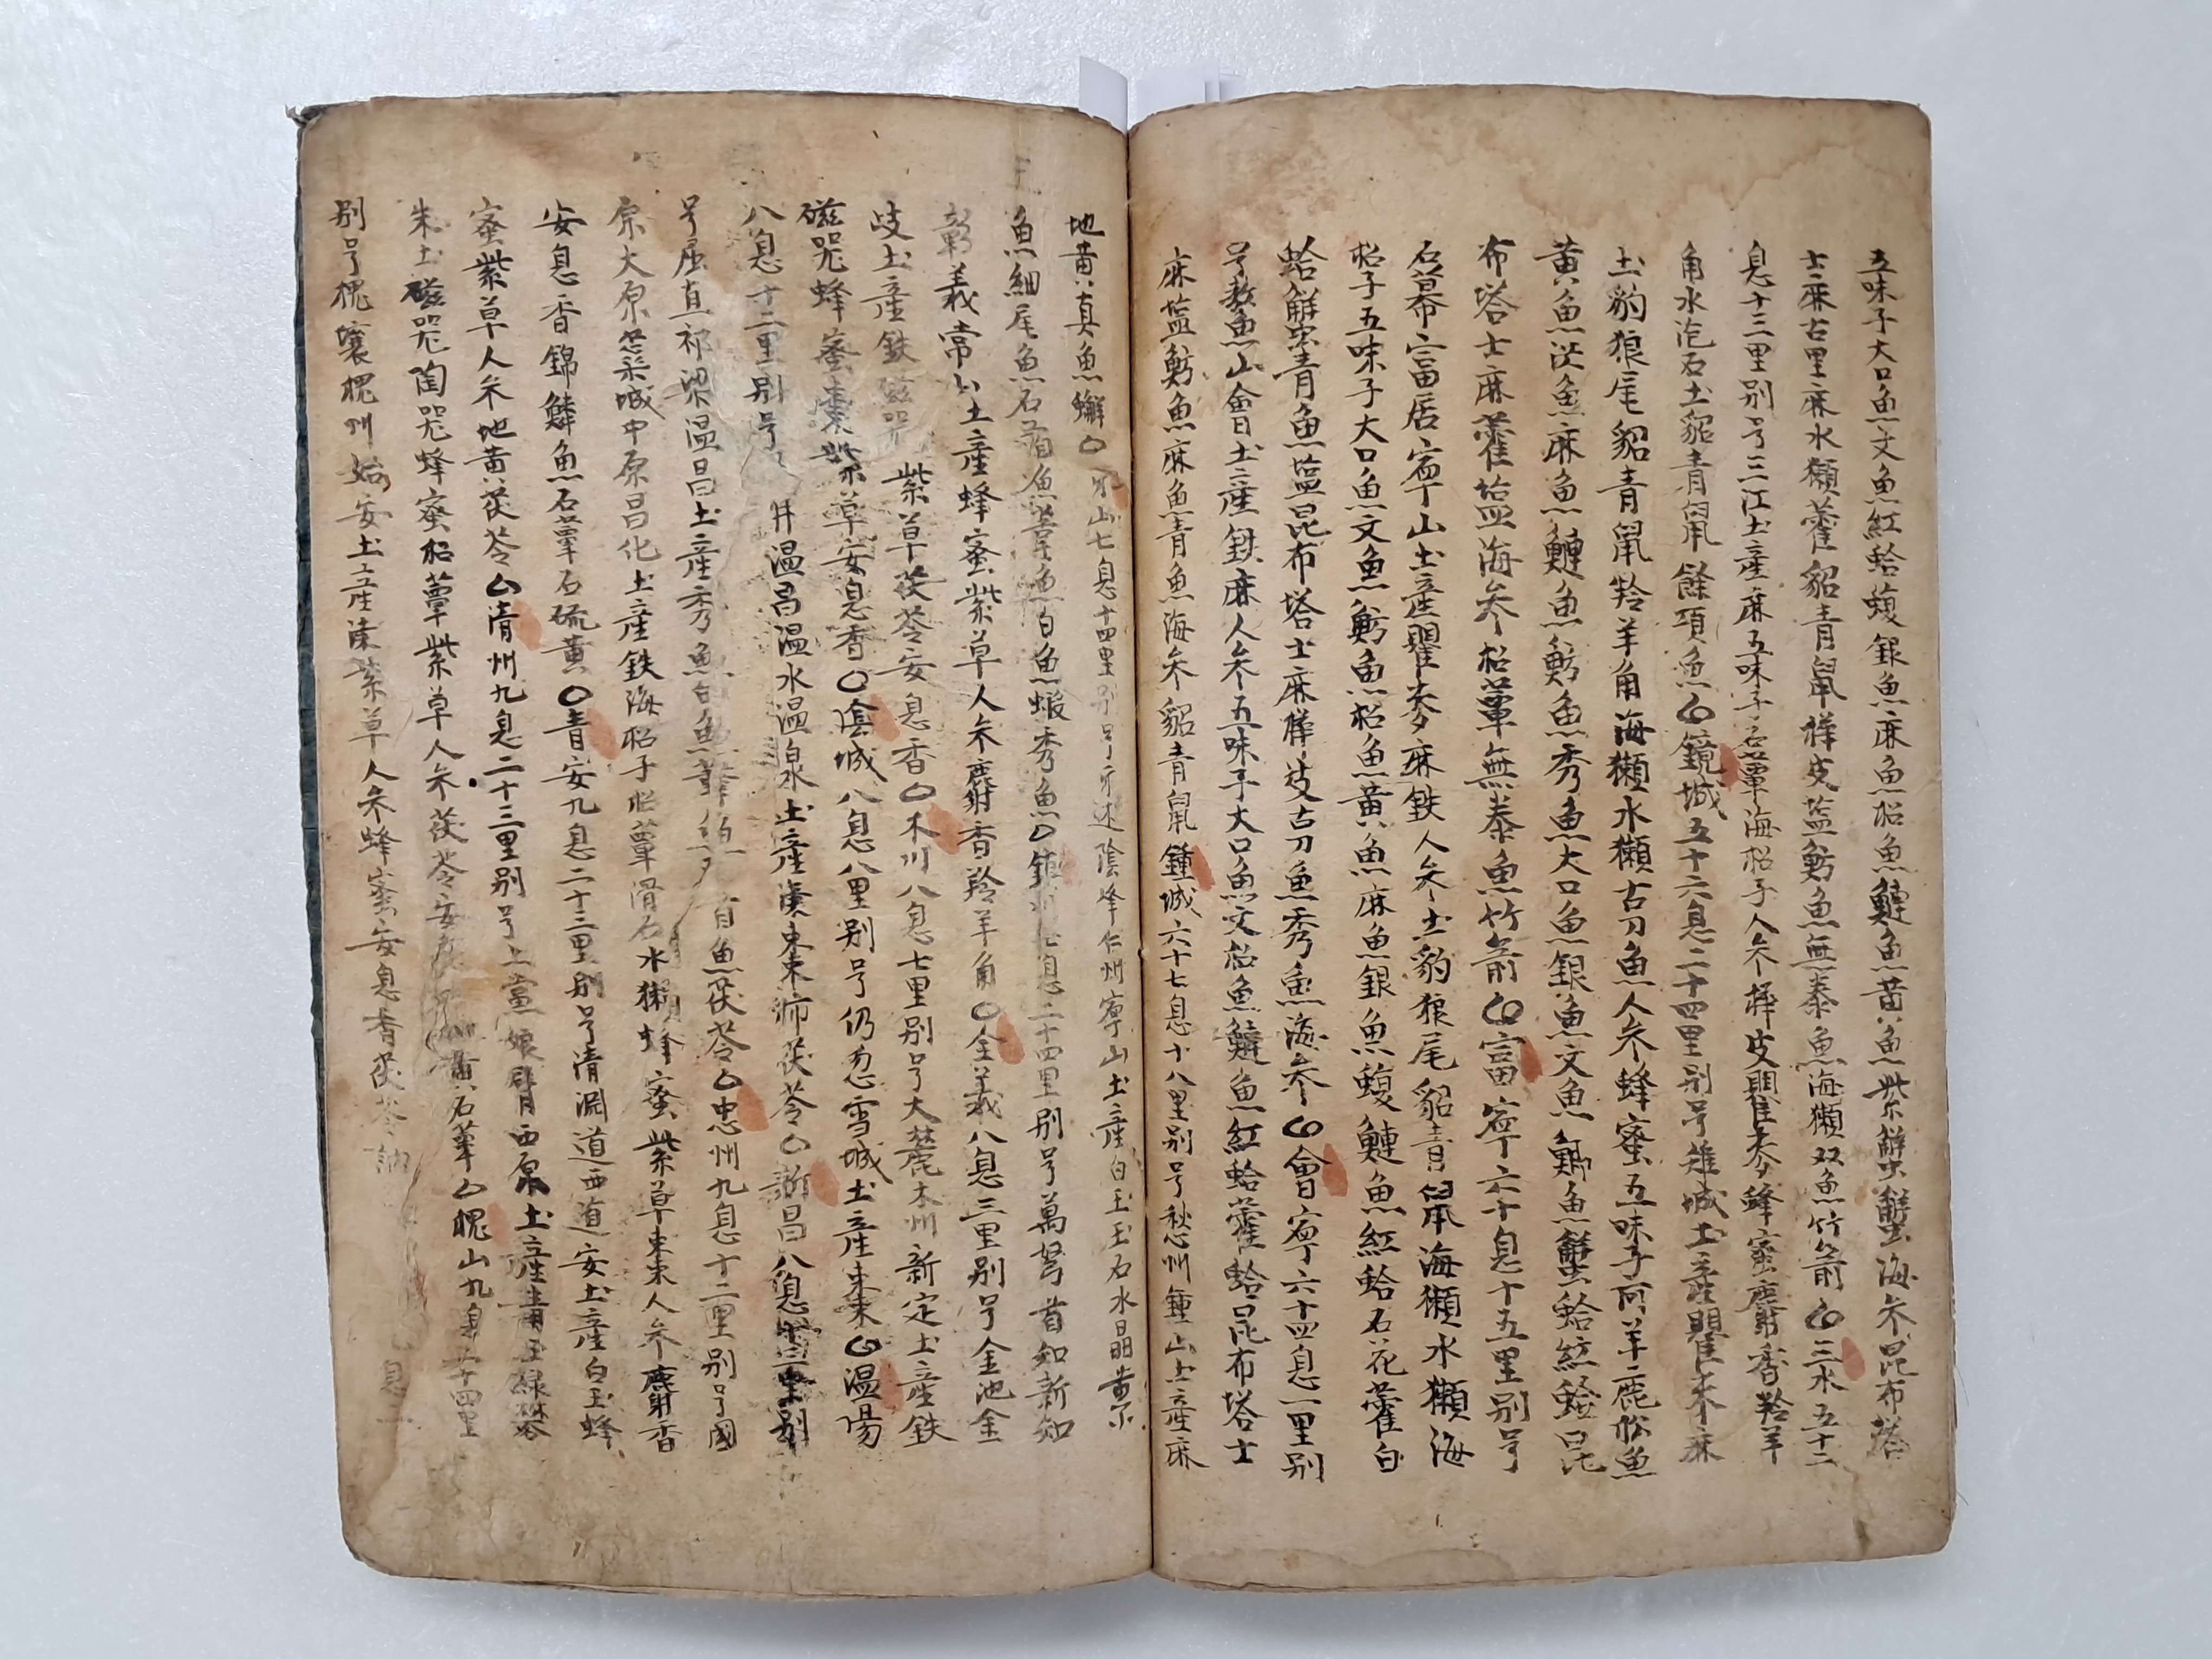 五味子大口魚文魚紅蛤蝮銀魚麻魚枱魚鰱魚黃魚紫蟹蟹海參昆布塔
士麻古里麻水獺藿貂青鼠樺皮塩魴魚無泰魚海獺双魚竹箭○三水五十二
息十三里別号三江土産麻五味子石蕈海枱子人參樺皮瞿麥蜂蜜麝香羚羊
角水泡石土貂青鼠餘項魚○鏡城五十六息二十四里別号雉城土産瞿麥麻
土豹狼尾貂青鼠羚羊角海獺水獺古刀魚人參蜂蜜五味子阿羊鹿松魚
黃魚洪魚麻魚鰱魚魴魚秀魚大口魚銀魚文魚魚蟹蛤紅蛤昆
布塔士麻藿塩海參枱蕈無泰魚竹箭○富寧六十息十五里別号
石幕富居寧山土産瞿麥麻鉄人參土豹狼尾貂青鼠海獺水獺海
枱子五味子大口魚文魚魴魚枱魚黃魚麻魚銀魚蝮鰱魚紅蛤石花藿白
蛤蟹青魚塩昆布塔士麻樺皮古刀魚秀魚海參○會寧六十四息一里別
号鰲魚山會山土産鉄麻人參五味子大口魚文枱魚鰱魚紅蛤藿蛤昆布塔士
麻塩魴魚麻魚青魚海參貂青鼠鍾城六十七息十八里別号愁州鍾山土産麻
地黃真魚蠏○牙山七息十四里別号牙述陰峰仁州寧山土産白玉玉石水晶黃
魚細尾魚石首魚葦魚白魚蝦秀魚○息二十四里別号萬弩首知新知
彰義常山土産蜂蜜紫草人參麝香羚羊角○全義八息三里別号金池全
歧土産鉄磁器紫草茯苓安息香○木川八息七里別号大麓木州新定土産鉄
磁器蜂蜜棗紫草安息香○陰城八息八里別号仍忽雪城土産棗○温陽
八息十二里別号井温昌温水温泉土産漆棗茯苓○新昌八息里別
号屈直祁梁温昌土産秀魚白魚葦魚首魚茯苓○忠州九息十二里別号國
原大原城中原昌化土産鉄海枱子枱蕈滑石水獺蜂蜜紫草棗人參麝香
安息香錦鱗魚石蕈石硫黃○青安九息二十三里別号清淵道西道安土産白玉蜂
蜜紫草人參地黃茯苓○清州九息二十三里別号上黨娘臂西原土産青玉
朱土磁器陶器蜂蜜枱蕈紫草人參茯苓安黃石蕈○槐山九息二十四里
別号槐壤槐州始安土産漆紫草人參蜂蜜安息香茯苓